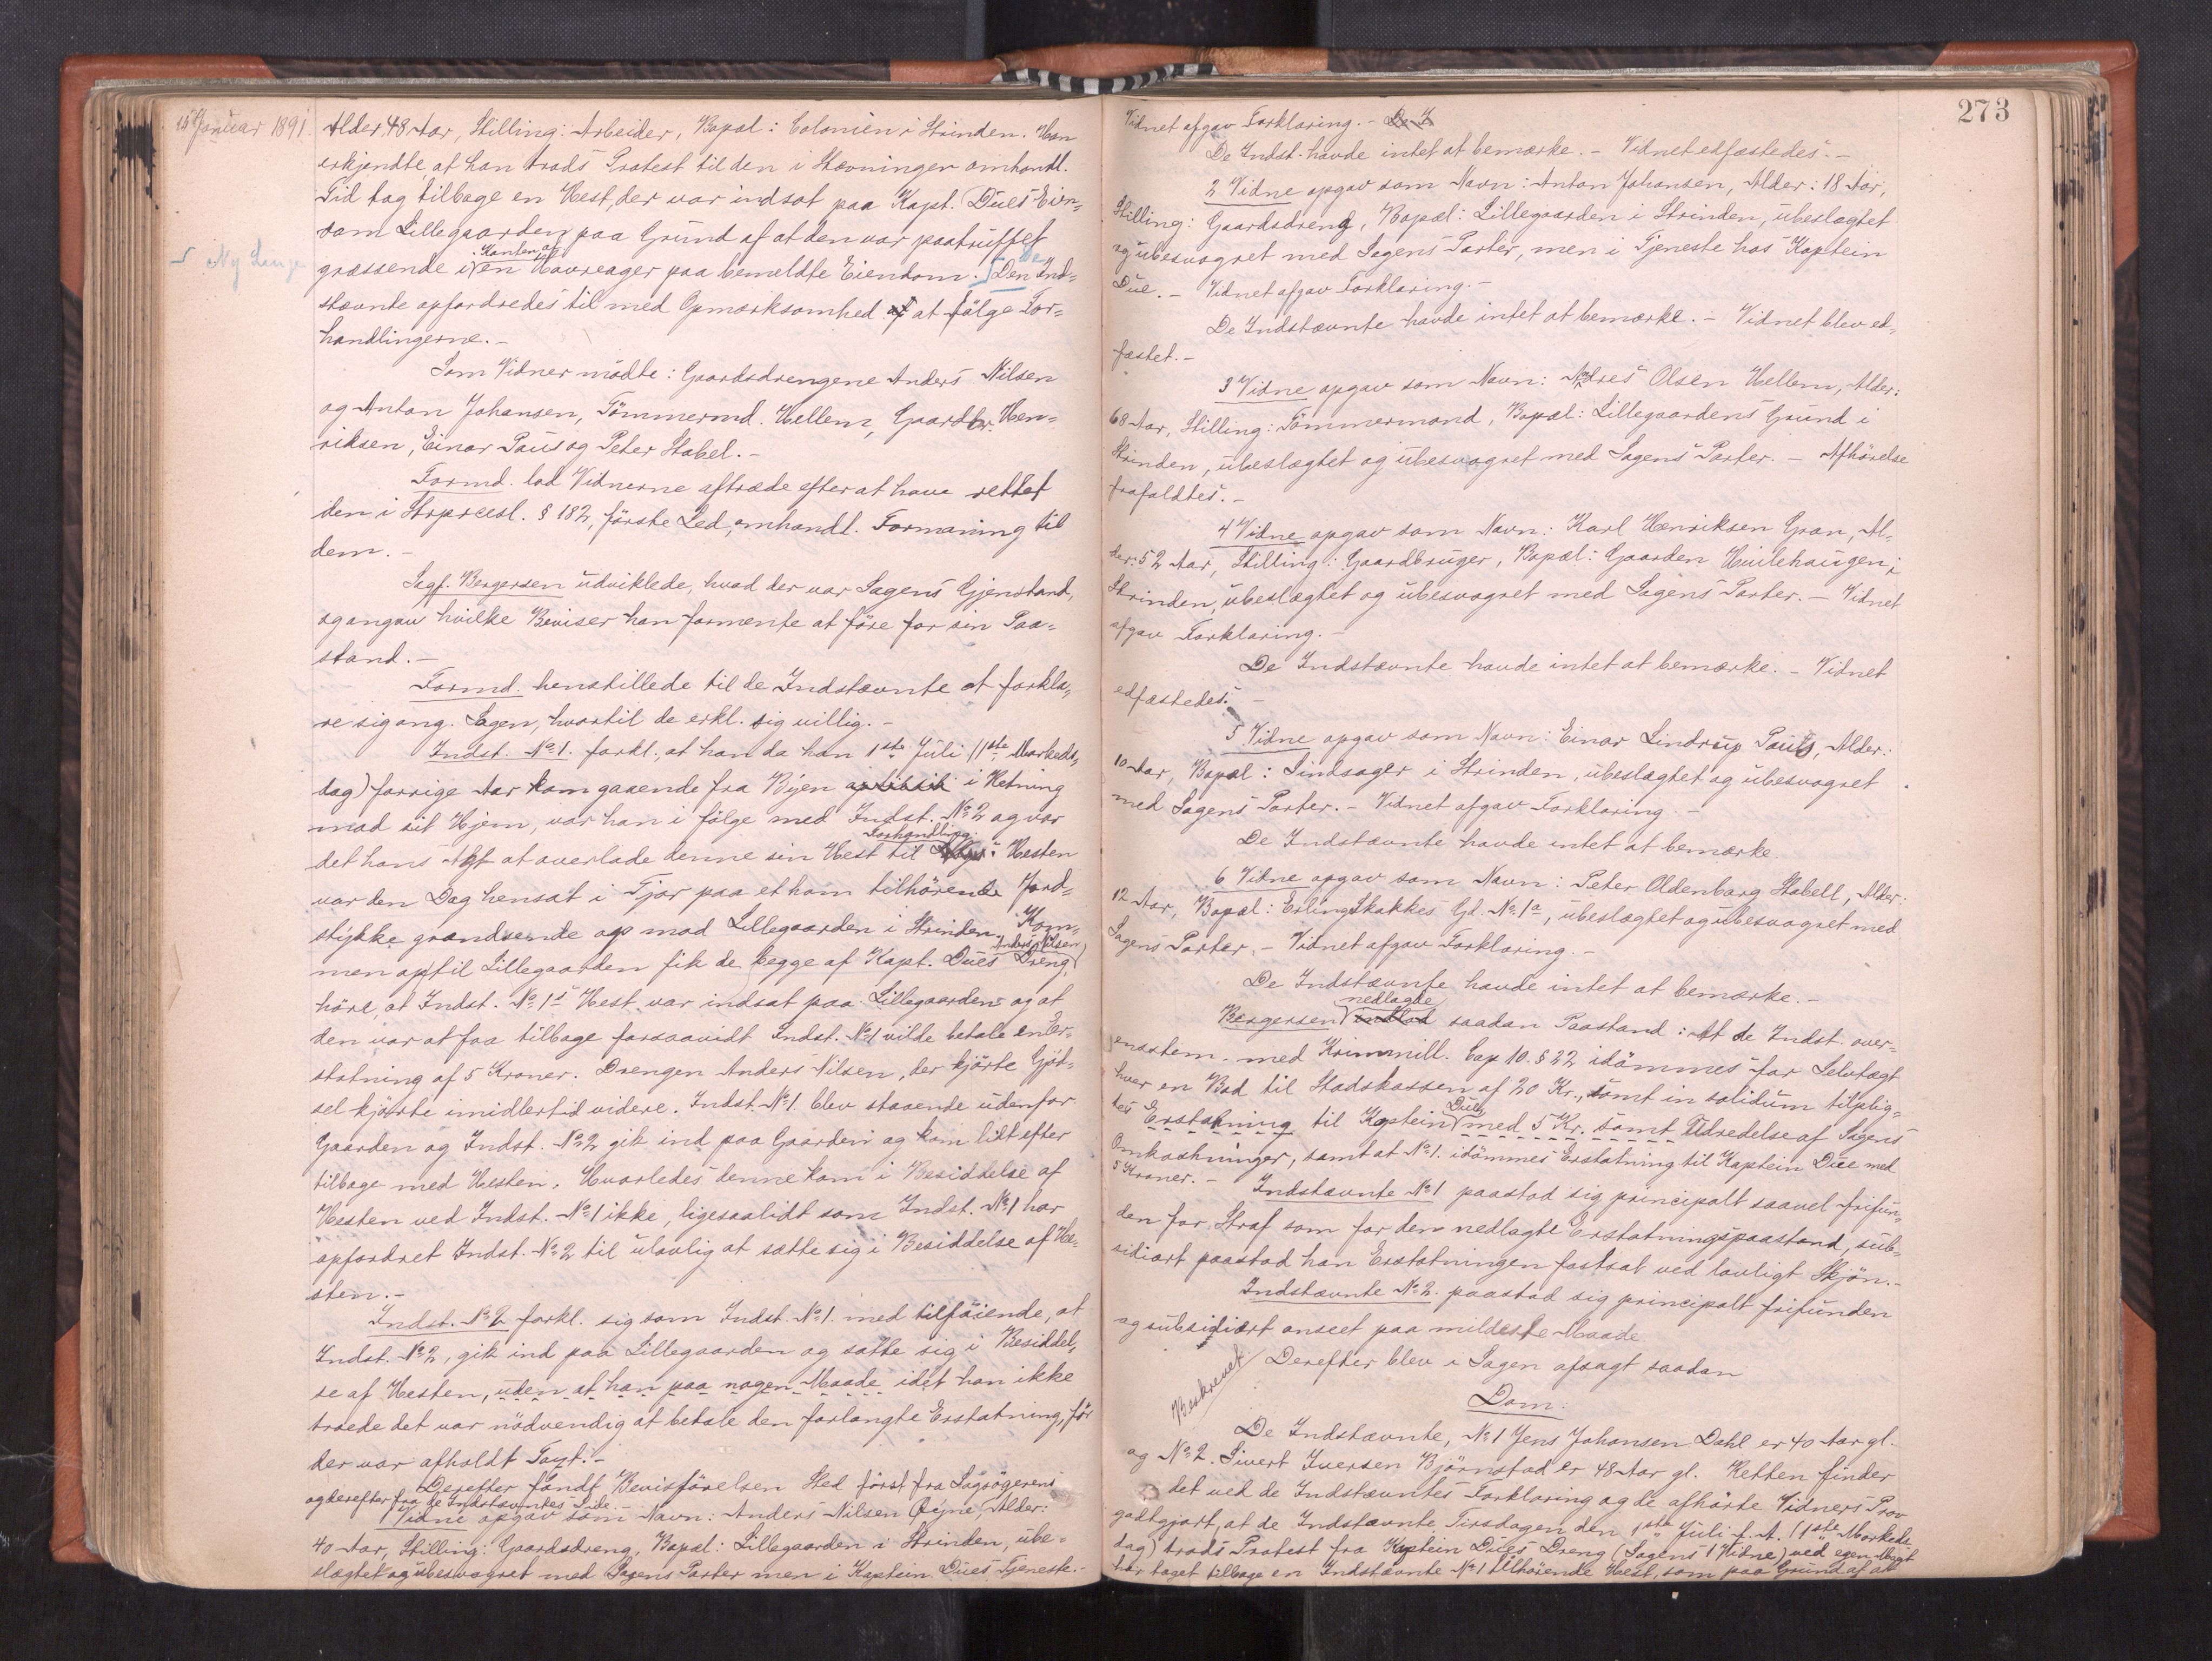 15 Januar 1891.
Alder 48 Aar, Stilling: Arbeider, Bopæl: Colonien i Strinden. Han
erkjendte, at han trods Protest til den i Stævningen omhandl.
Tid tog tilbage en Hest, der var indsat paa Kapt. Dues Eien-
dom Lillegaarden paa Grund af at den var paatruffet
Kanten af
græssende i en Havreager paa bemeldte Eiendom. Den Ind-
De
Ny Lange
stævnte opfordredes til med Opmærksomhed af at følge For-
handlingerne.-
Som Vidner mødte: Gaardsdrengene Anders Nilsen
og Anton Johansen, Tømmermd. Hellem, Gaardbr. Hen-
riksen, Einar Paus og Peter Stabel.-
Formd. lod Vidnerne aftræde efter at have rettet
den i Strprcesl. § 182, første Led, omhandl. Formaning til
dem.-
Sagf. Bergersen udviklede, hvad der var Sagens Gjenstand,
og angav hvilke Beviser han formente at føre for sin Paa-
stand.-
Formd. henstillede til de Indstævnte at forkla-
re sig ang. Sagen, hvortil de erkl. sig villig.-
Indst. No 1. forkl., at han da han 1ste Juli (1ste Markeds-
dag) forrige Aar kom gaaende fra Byen i Retning
mod sit Hjem, var han i følge med Indst. No 2 og var
Forhandling.
det hans Agt at overlade denne sin Hest til Hesten
var den Dag hensat i Tjor paa et ham tilhørende Jord-
stykke grændsende op mod Lillegaarden i Strinden. Kom-
Anders Nilsen
men op til Lillegaarden fik de begge af Kapt. Dues Dreng
høre, at Indst. No 1s Hest var indsat paa Lillegaarden og at
den var at faa tilbage forsaavidt Indst. No 1 vilde betale en Er-
statning af 5 Kroner. Drengen Anders Nilsen, der kjørte Gjød-
sel kjørte imidlertid videre. Indst. No 1. blev staaende udenfor
Gaarden og Indst. No 2 gik ind paa Gaarden og kom lidt efter
tilbage med Hesten. Hvorledes denne kom i Besiddelse af
Hesten ved Indst. No 1 ikke, ligesaalidt som Indst. No 1 har
opfordret Indst. No 2 til ulovlig at sætte sig i Besiddelse af He-
sten.-
Indst. No 2 forkl. sig som Indst. No 1. med tilføiende, at
Indst. No 2, gik ind paa Lillegaarden og satte sig i Besiddel-
se af Hesten, uden at han paa nogen Maade idet han ikke
troede det var nødvendig at betale den forlangte Erstatning, før
der var afholdt Taxt.-
Derefter fandt Bevisførelsen Sted først fra Sagsøgerens
og derefter fra de Indstævntes Side.-
1 Vidne opgav som Navn: Anders Nilsen Øyne, Alder:
40 Aar, Stilling: Gaardsdreng, Bopæl: Lillegaarden i Strinden, ube-
slægtet og ubesvogret med Sagens Parter men i Kaptein Dues Tjeneste.-
273
Vidnet afgav Forklaring.- De I
De Indst. havde intet at bemærke.- Vidnet edfæstedes.-
2 Vidne opgav som Navn: Anton Johansen, Alder: 18 Aar,
Stilling: Gaardsdreng, Bopæl: Lillegaarden i Strinden, ubeslægtet
og ubesvogret med Sagens Parter, men i Tjeneste hos Kaptein
Due.- Vidnet afgav Forklaring.-
De Indstævnte havde intet at bemærke.- Vidnet blev ed-
fæstet.-
3 Vidne opgav som Navn: Andres Olsen Hellem, Alder:
68 Aar, Stilling: Tømmermand, Bopæl: Lillegaardens Grund i
Strinden, ubeslægtet og ubesvogret med Sagens Parter.- Afhørelse
frafaldtes.-
4 Vidne opgav som Navn: Karl Henriksen Gran, Al-
der: 52 Aar, Stilling: Gaardbruger, Bopæl: Gaarden Hvilehaugen i
Strinden, ubeslægtet og ubesvogret med Sagens Parter.- Vidnet
afgav Forklaring.-
De Indstævnte havde intet at bemærke.- Vidnet
edfæstedes.-
5 Vidne opgav som Navn: Einar Lindrup Paus, Alder:
10 Aar, Bopæl: Sindsager i Strinden, ubeslægtet og ubesvogret
med Sagens Parter.- Vidnet afgav Forklaring.-
De Indstævnte havde intet at bemærke.
6 Vidne opgav som Navn: Peter Oldenbarg Stabell, Alder:
12 Aar, Bopæl: Erling Skakkes Gd. No 1a, ubeslægtet og ubesvogret med
Sagens Parter.- Vidnet afgav Forklaring.-
De Indstævnte havde intet at bemærke.-
nedlagde
Bergersen indlod saadan Paastand: At de Indst. over-
ensstem. med Kriminll. Cap 10. § 22 idømmes for Selvtægt
hver en Bod til Statskassen af 20 Kr., samt in solidum tilplig-
Dues
tes Erstatning til Kaptein med 5 Kr. samt Udredelse af Sagens
Omkostninger, samt at No 1. idømmes Erstatning til Kaptein Due med
5 Kroner.- Indstævnte No 1 paastod sig principalt saavel frifun-
den for Straf som for den nedlagte Erstatningspaastand, sub-
sidiært paastod han Erstatningen fastsat ved lovligt Skjøn.-
Indstævnte No 2. paastod sig principalt frifunden
og subsidiært anseet paa mildeste Maade.
Beskrevet
Derefter blev i Sagen afsagt saadan
Dom:
De Indstævnte, No 1 Jens Johansen Dahl er 40 Aar gl.
og No 2. Sivert Iversen Bjørnstad er 48 Aar gl. Retten finder
det ved de Indstævntes Forklaring og de afhørte Vidners Prov
godtgjort, at de Indstævnte Tirsdagen den 1ste Juli f. A. (1ste Markeds-
dag) trods Protest fra Kaptein Dues Dreng (Sagens 1 Vidne) ved egen Magt
har taget tilbage en Indstævnte No 1 tilhørende Hest, som paa Grund af at